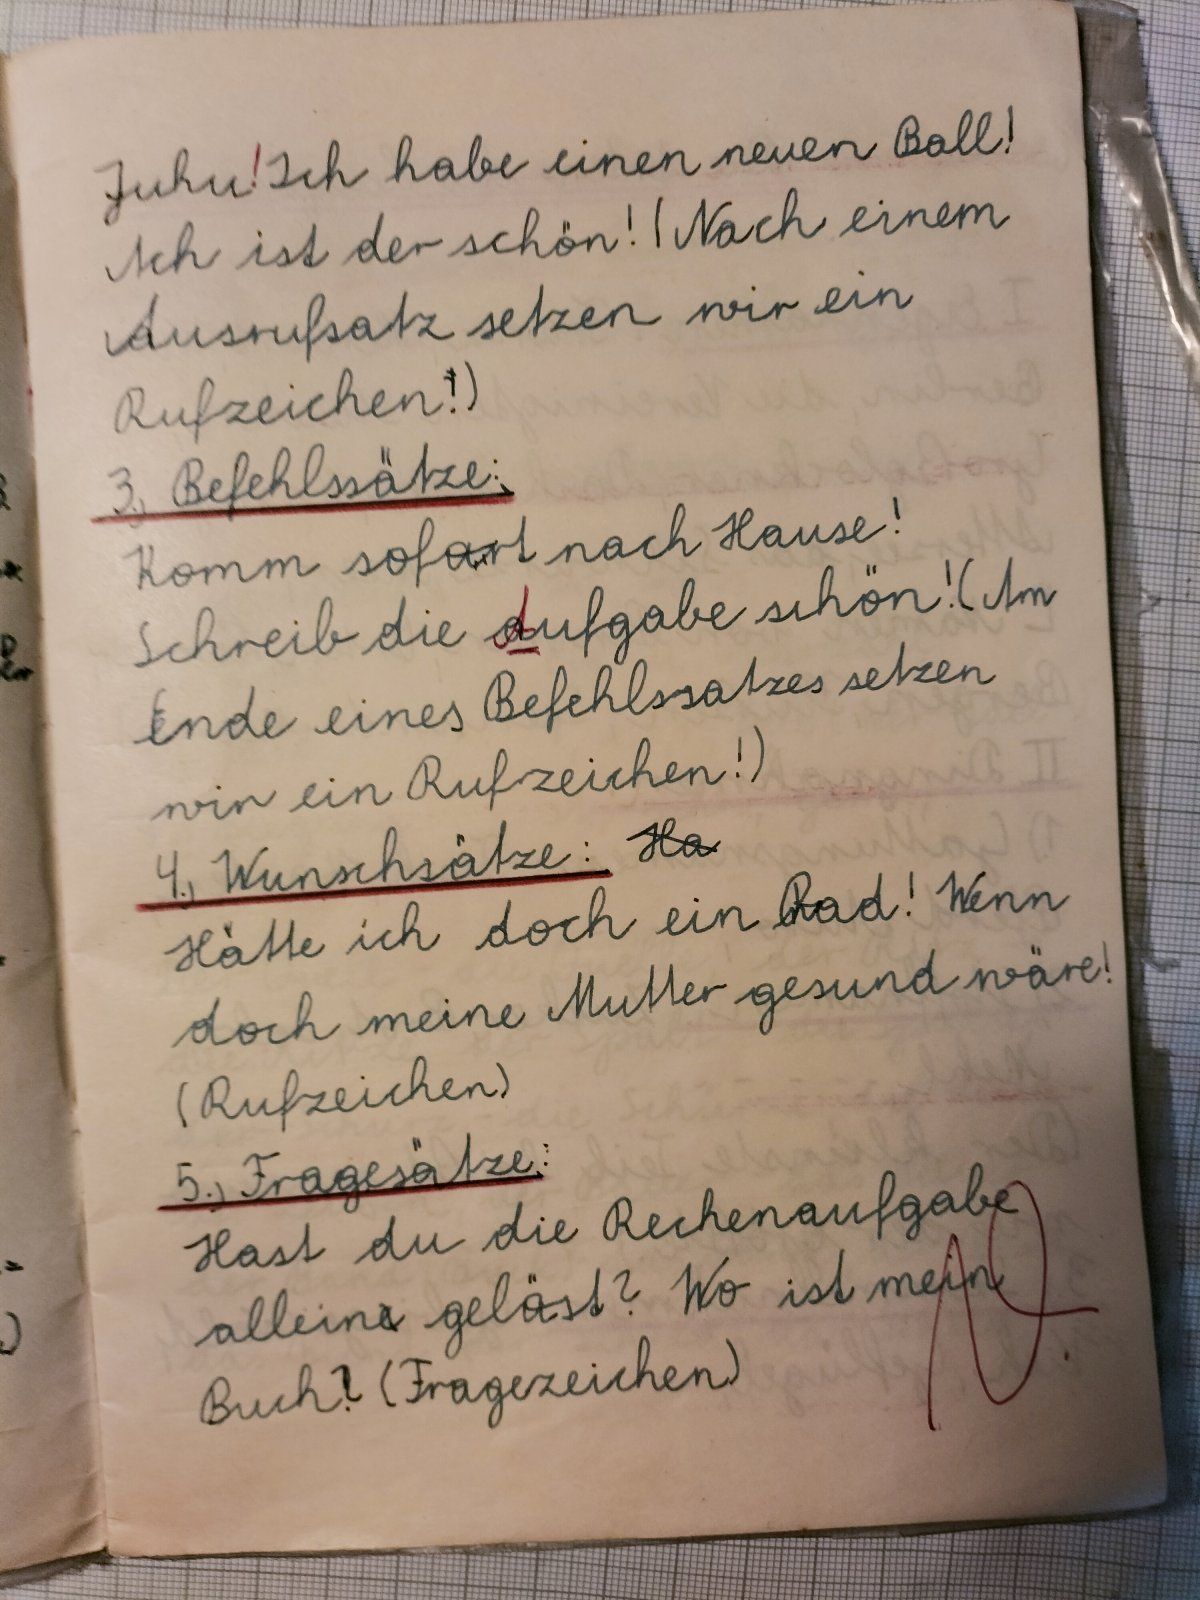 Juhu! Ich habe einen neuen Ball!
Ach ist der schön! (Nach einem
Ausrufsatz setzen wir ein
Rufzeichen!)
3., Befehlssätze:
Komm sofort nach Hause!
Schreib die Aufgabe schön! (Am
Ende eines Befehlssatzes setzen
wir ein Rufzeichen!)
4., Wunschsätze: Ha
Hätte ich doch ein Rad! Wenn
doch meine Mutter gesund wäre!
(Rufzeichen)
5., Fragesätze:
Hast du die Rechenaufgabe
allein geläst? Wo ist mein
Buch? (Fragezeichen)